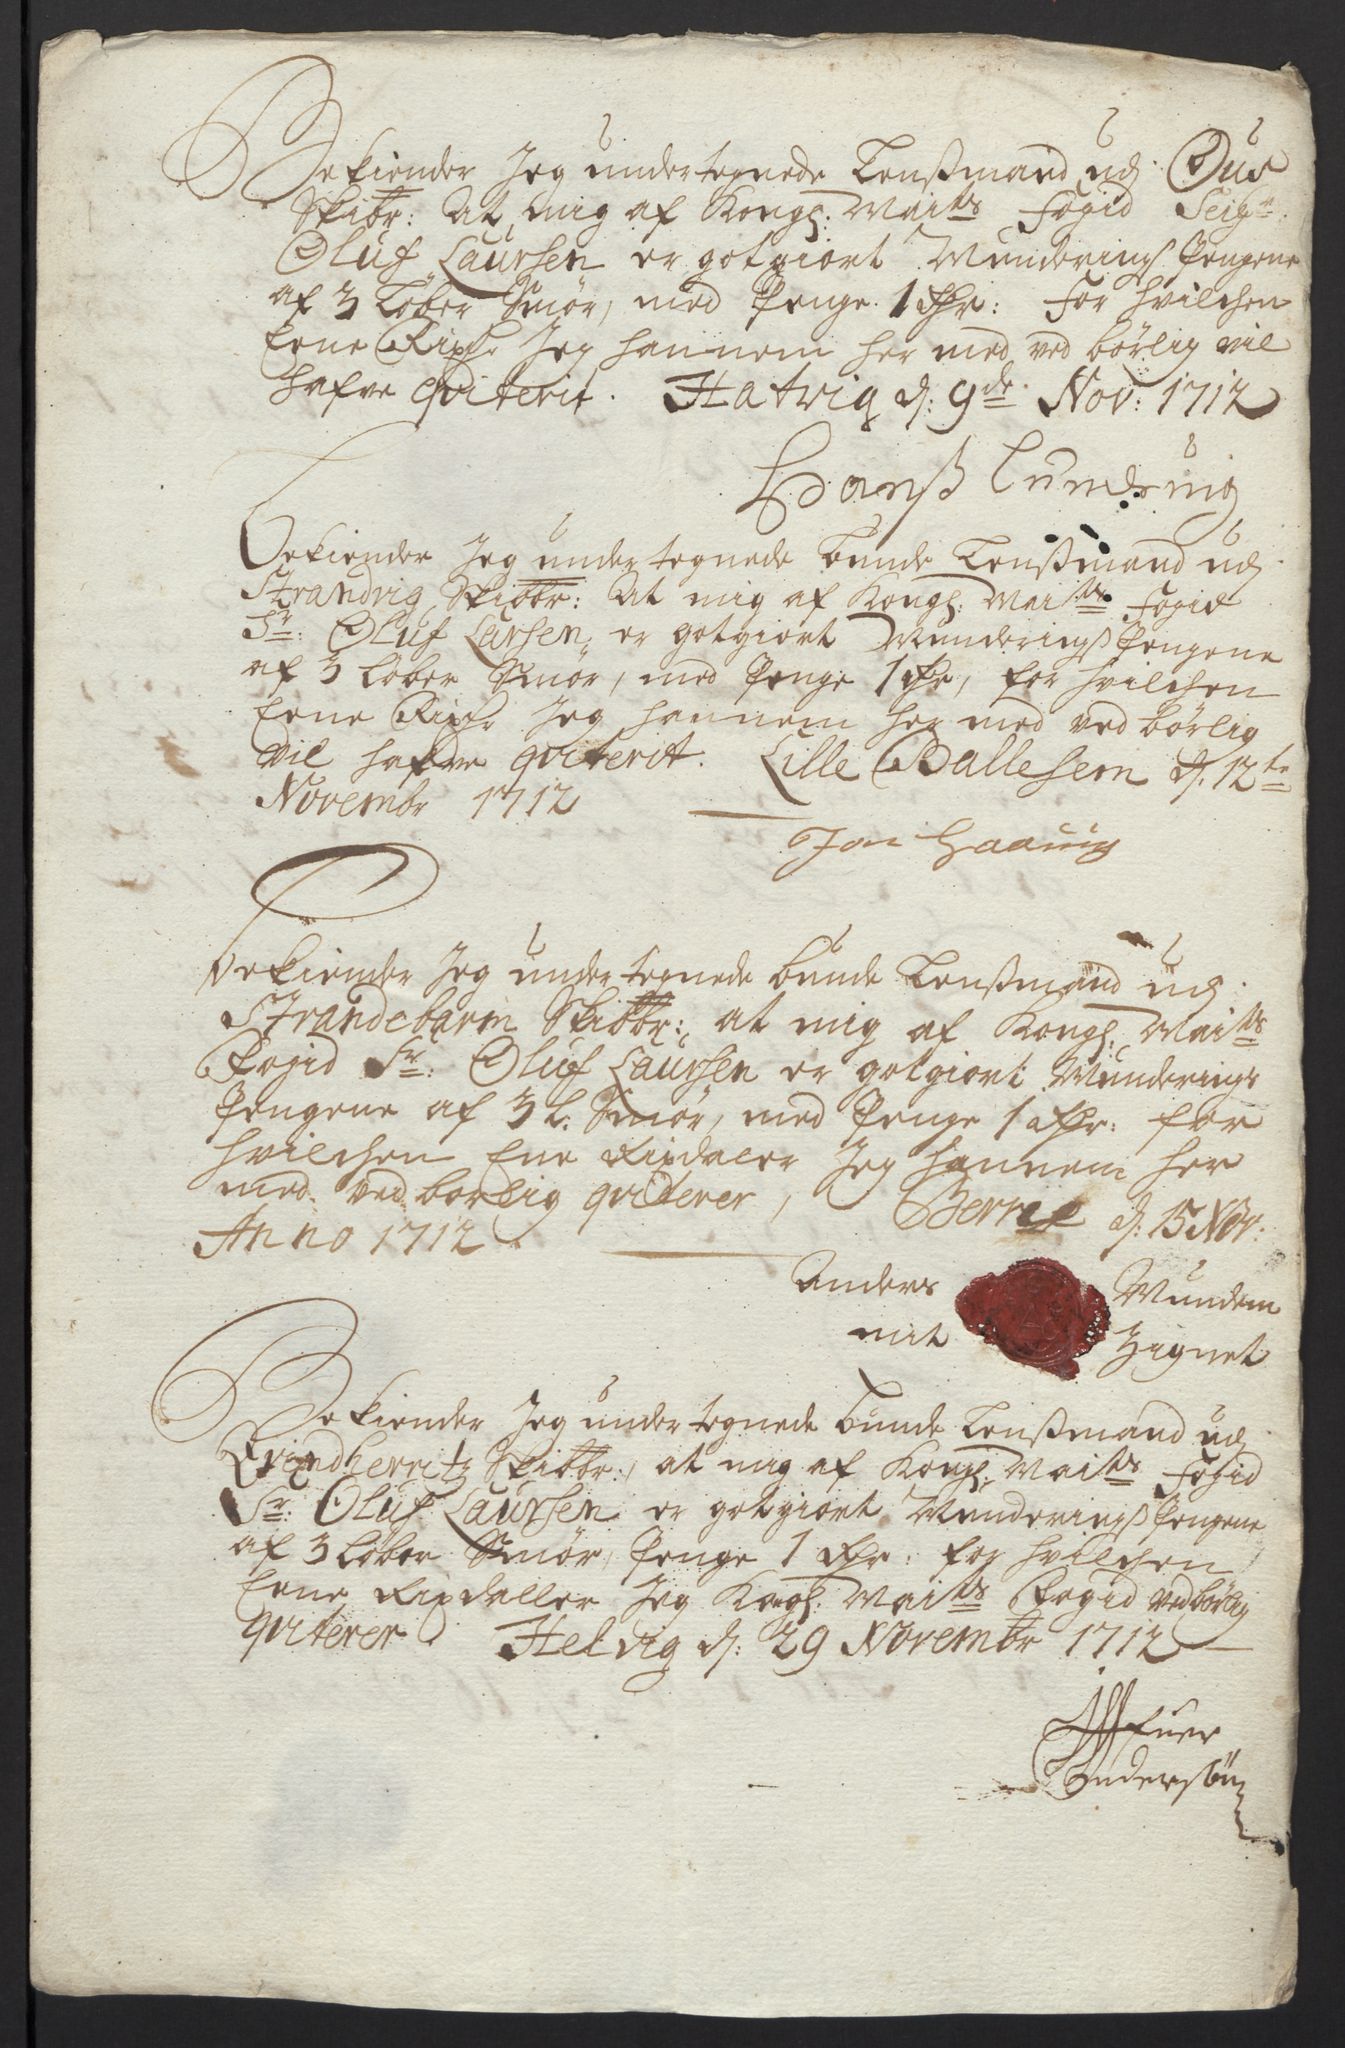 Bekiender Jeg undertegnede Lensßmand udj Ous
Skibr: At mig af Kongl: Maÿts Fogid Seigr
Oluf Laursen er gotgiort Munderings Pengene
af 3 Løber Smør, med Penge 1 Rdr: For hvilchen
Eene Rixdr Jeg hannem her med ved børlig vil
hafve qviterit. Hatvig d: 9de Nov: 1712
Hanß Lundsuig
Bekiender Jeg undertegnede bunde Lensßmand udj
Strandvig Skibbr: At mig af Kongl: Maÿts Fogid
Sr: Oluf Larsen er gotgiort Munderingß Pengene
af 3 Løber Smør, med Penge 1 Rdr, for hvilchen
Eene Rixdr Jeg hannem her med ved børlig
vil hafve qviterit. Lille Ballesem d: 12te
Novembr 1712
Jon Haavig
Bekiender Jeg undertegnede bunde Lensßmand udj
Strandebarm Skibbr: at mig af Kongl: Maÿts
Fogid Sr: Oluf Laursen er gotgiort Munderings
Pengene af 3 L. Smør, med Penge 1 Rdr: for
hvilchen Ene Rixdaler Jeg hannem her
med ved børlig qviterer, d: 15 Nov:
Anno 1712
Anders Munden
mit Zignet
Bekiender Jeg undertegnede bunde Lensßmand udj
Qvindherritz Skibbr:, at mig af Kongl: Maÿts Fogid
Sr: Oluf Laursen er gotgiort Munderingß Pengene
af 3 Løber Smør, Penge 1 Rdr: for hvilchen
Eene Rixdaller Jeg Kongl: Maÿts Fogid ved børlig
qviterer. Helvig d: 29 Novembr 1712
Anderssøn